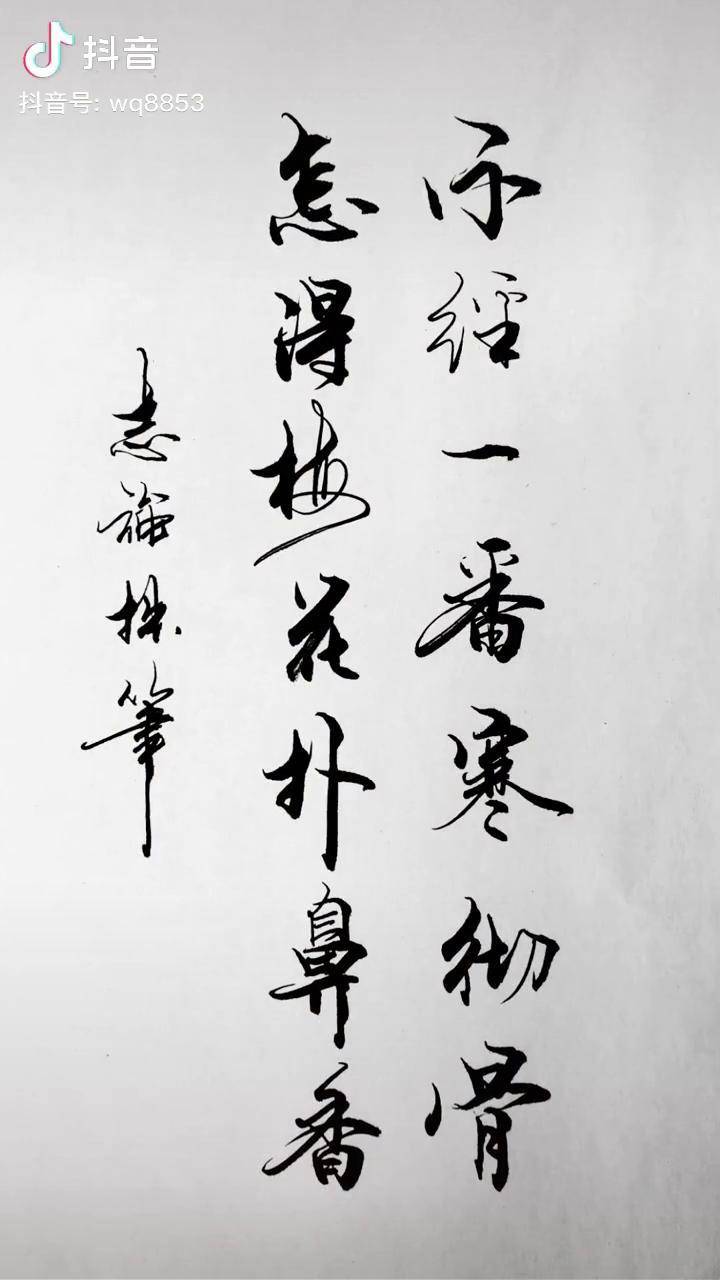 抖音
抖音号: wq8853
不經一番寒彻骨
怎得梅花扑鼻香
志 筆